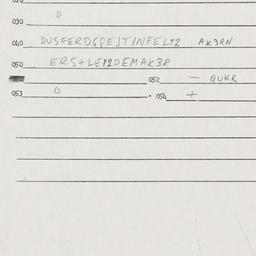 0
030
040 DUSFERDGPESTINFELT2 AK3RN
050 ERS+LE12DEMAK3R
052 — QUKR
053 0 054 +